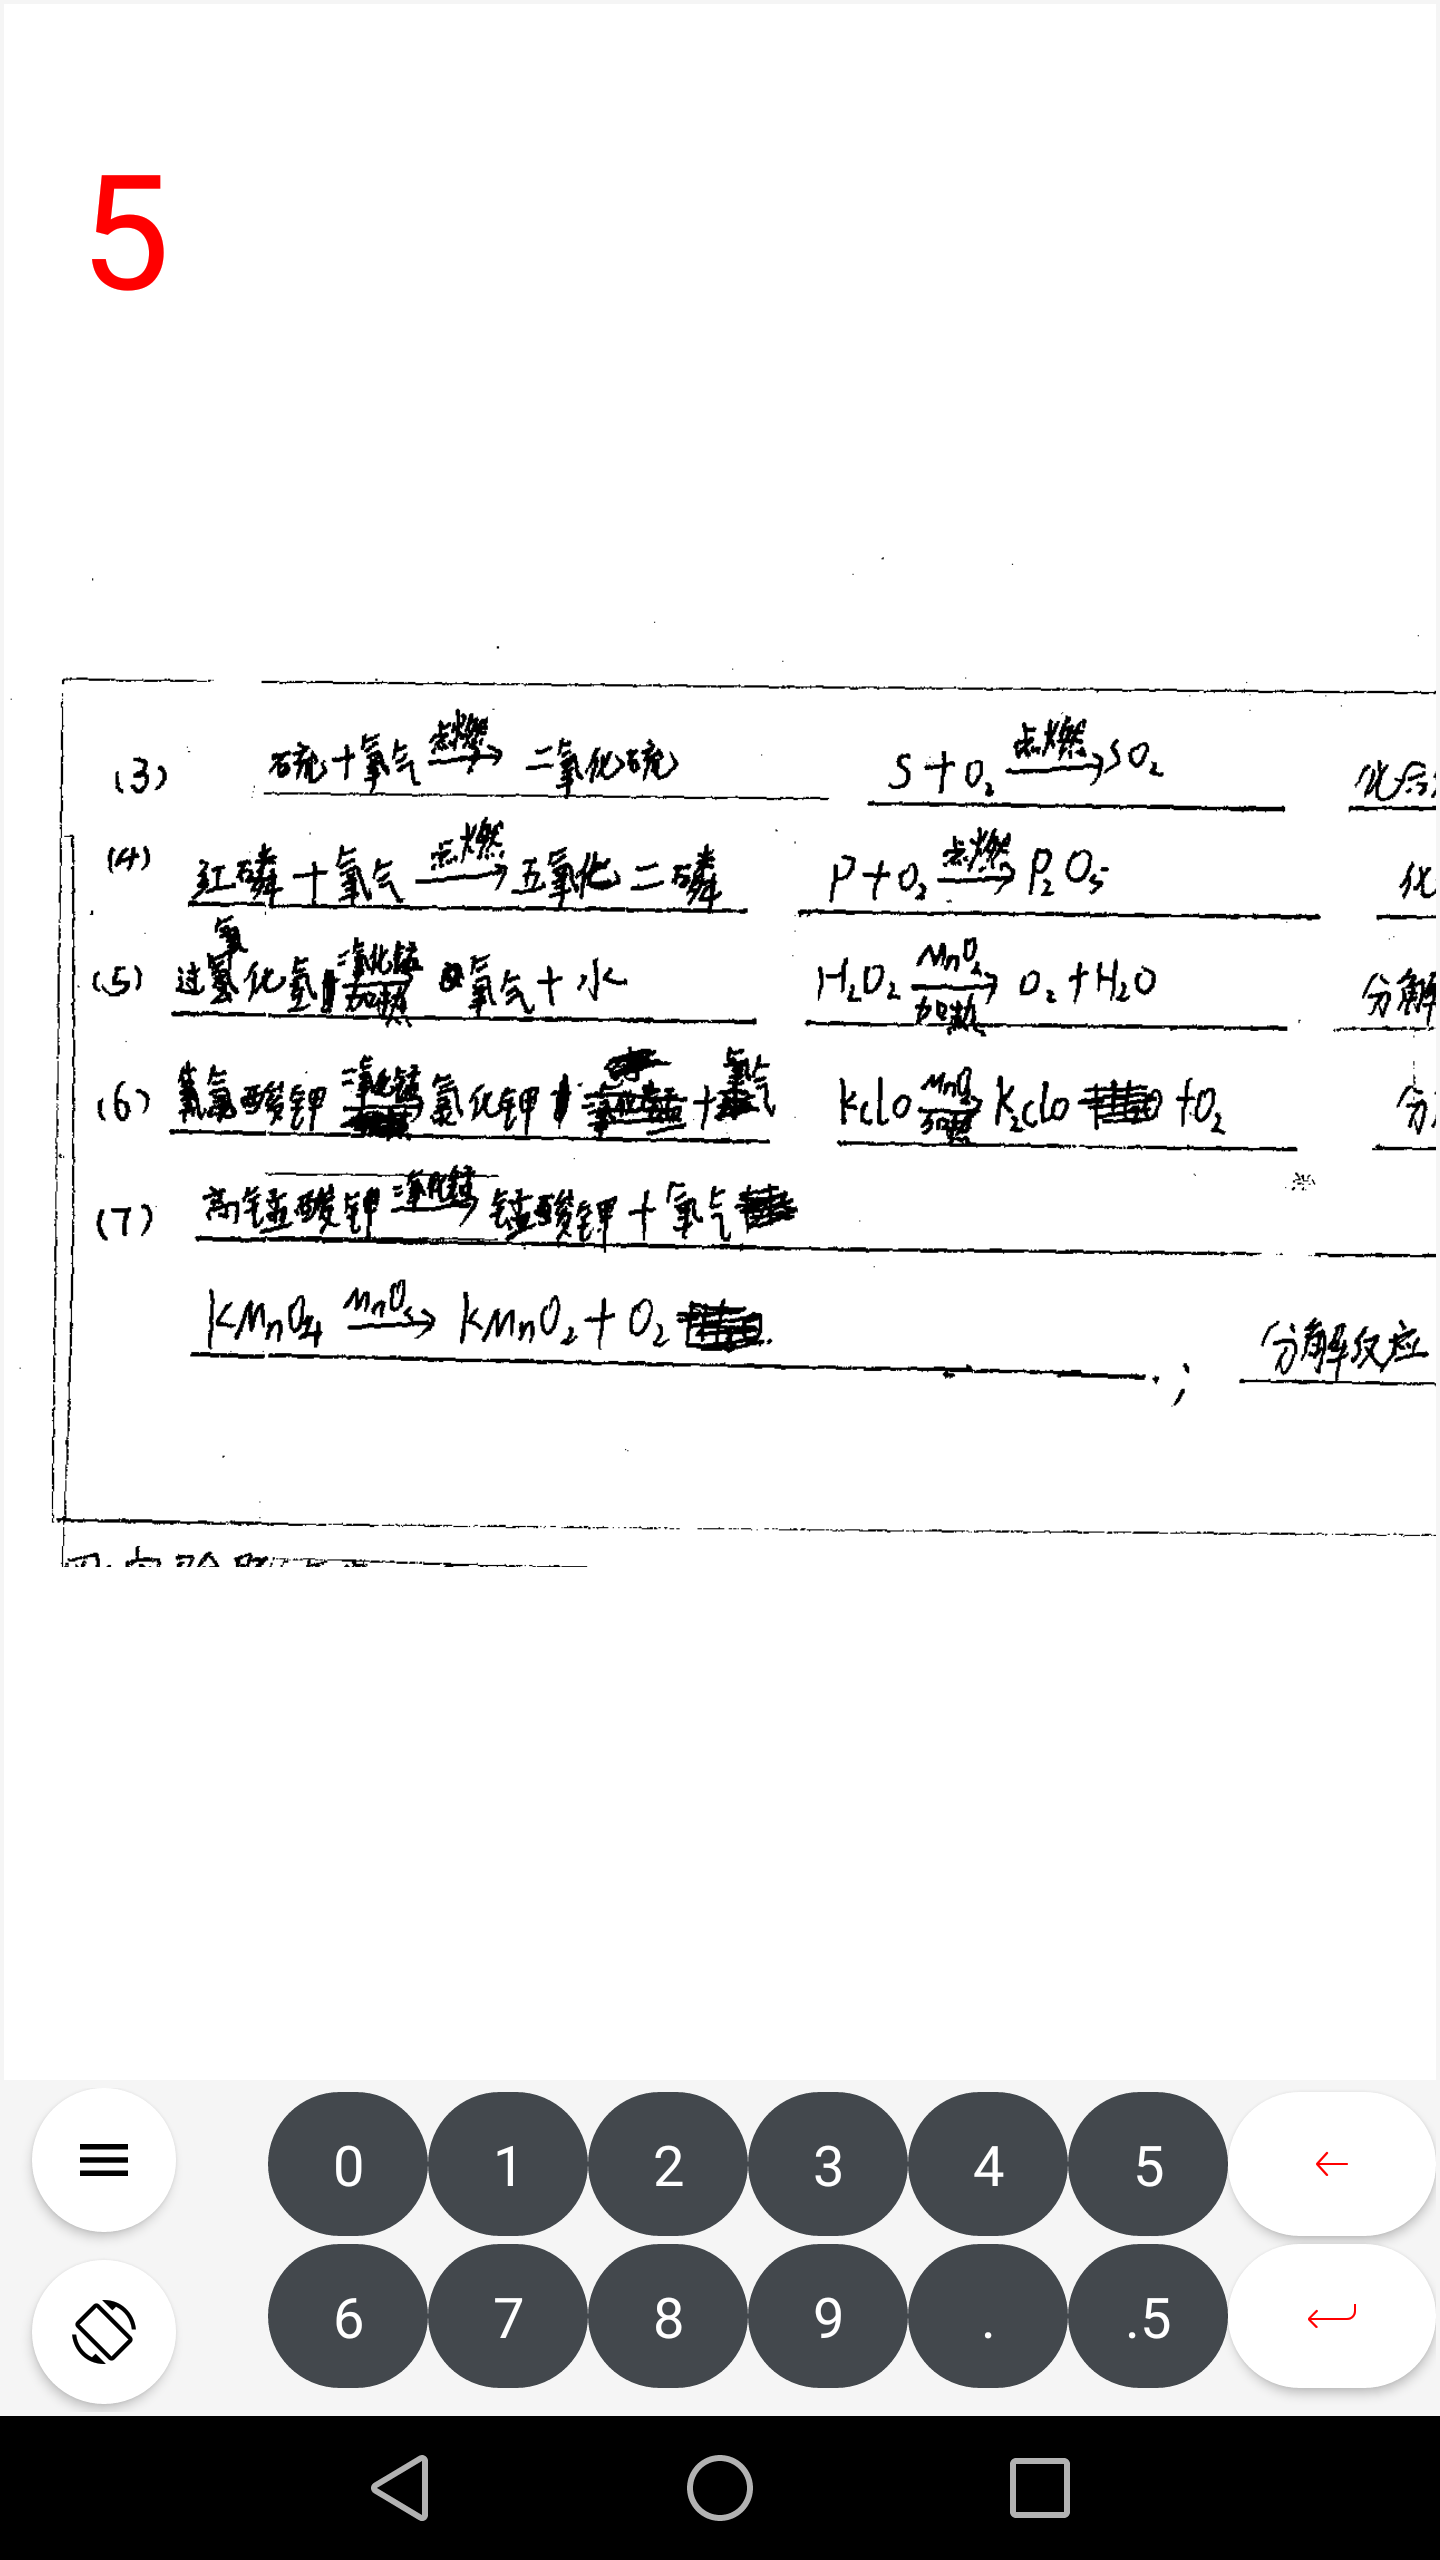 5
(3) 硫+氧气 点燃→ 二氧化硫 S+O₂ 点燃→ SO₂ 化合
(4) 红磷+氧气 点燃→ 五氧化二磷 P+O₂ 点燃→ P₂O₅ 化
(5) 过氧化氢 二氧化锰 加热→ 氧气+水 H₂O₂ MnO₂ 加热→ O₂+H₂O 分解
(6) 氯酸钾 二氧化锰→ 氯化钾 +氧气 KClO MnO₂ 加热→ K₂ClO +O₂ 分
(7) 高锰酸钾 二氧化锰→ 锰酸钾+氧气
KMnO₄ MnO₂→ KMnO₂+O₂ ; 分解反应
0 1 2 3 4 5 ←
6 7 8 9 . .5